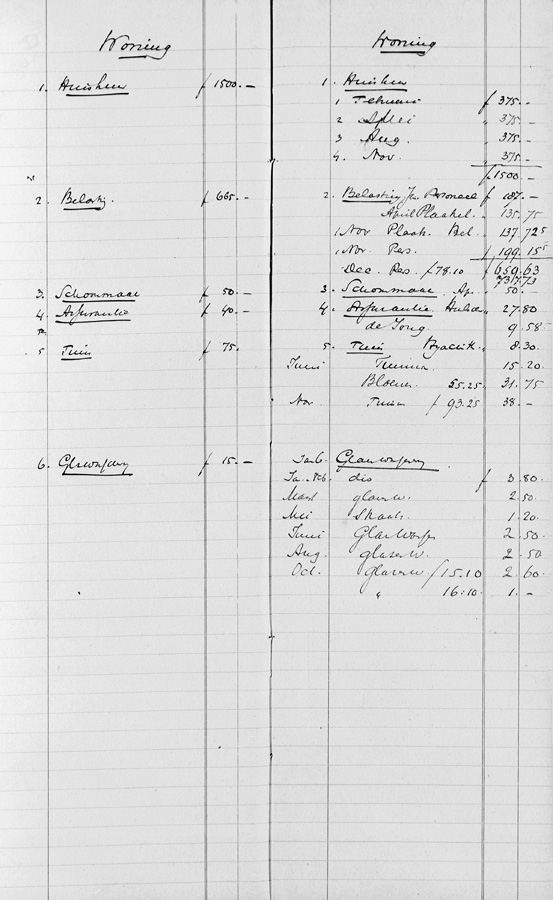 Woning
1. Huishuur f 1500.-
2. Belastg. f 665.-
3. Schommaak f 50.-
4. Assurantie f 40.-
5 Tuin f 75.
6. Glaswasschery f 15.-
Woning
1. Huishuur
1 Februari f 375.-
2 " 375.-
3 Aug. " 375.-
4. Nov. " 375.-
f 1500.-
2. Belasting Personeel f 187.-
April Plaatsel. " 135.75
1 Nov Plaats. Bel. " 137.725
1 Nov. Pers. f 199.155
Dec. Pers. f 78.10 f 659.63
3. Schommaak Ap. " 50.-
4. Assurantie " 27.80
de Jong. 9.58
5. Tuin " 8.30
Juni Tuinm. 15.20
Bloem 55.25 31.75
Nov Tuinm f 93.25 38.-
6. Glaswasschery
Ja. Feb. dio f 3.80
Maart glazenw. 2.50
Mei 1.20
Juni Glaswasscher 2.50
Aug. glazenw. 2.50
Oct. glazenw. f 15.10 2.60
" 16.10 1.-